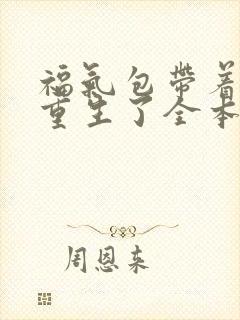 福氣包帶着
重生了全本
周恩来